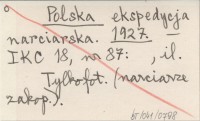 Polska ekspedycja
narciarska. 1927.
IKC 18, nr 87: , il.
Tylko fot. (narciarze
zakop.).